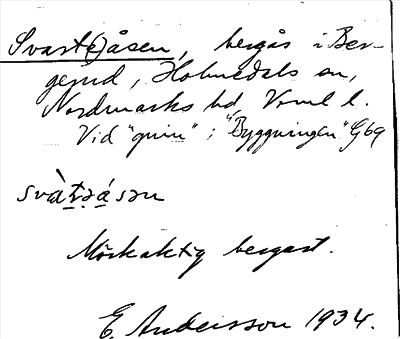 Svart(e)åsen, bergås i Ber-
gerud, Holmedals sn,
Nordmarks hd, Vrml l.
Vid "gruv" i "Byggningen" G69
svàtəásən
Mörkaktig bergart.
E. Andersson 1934.